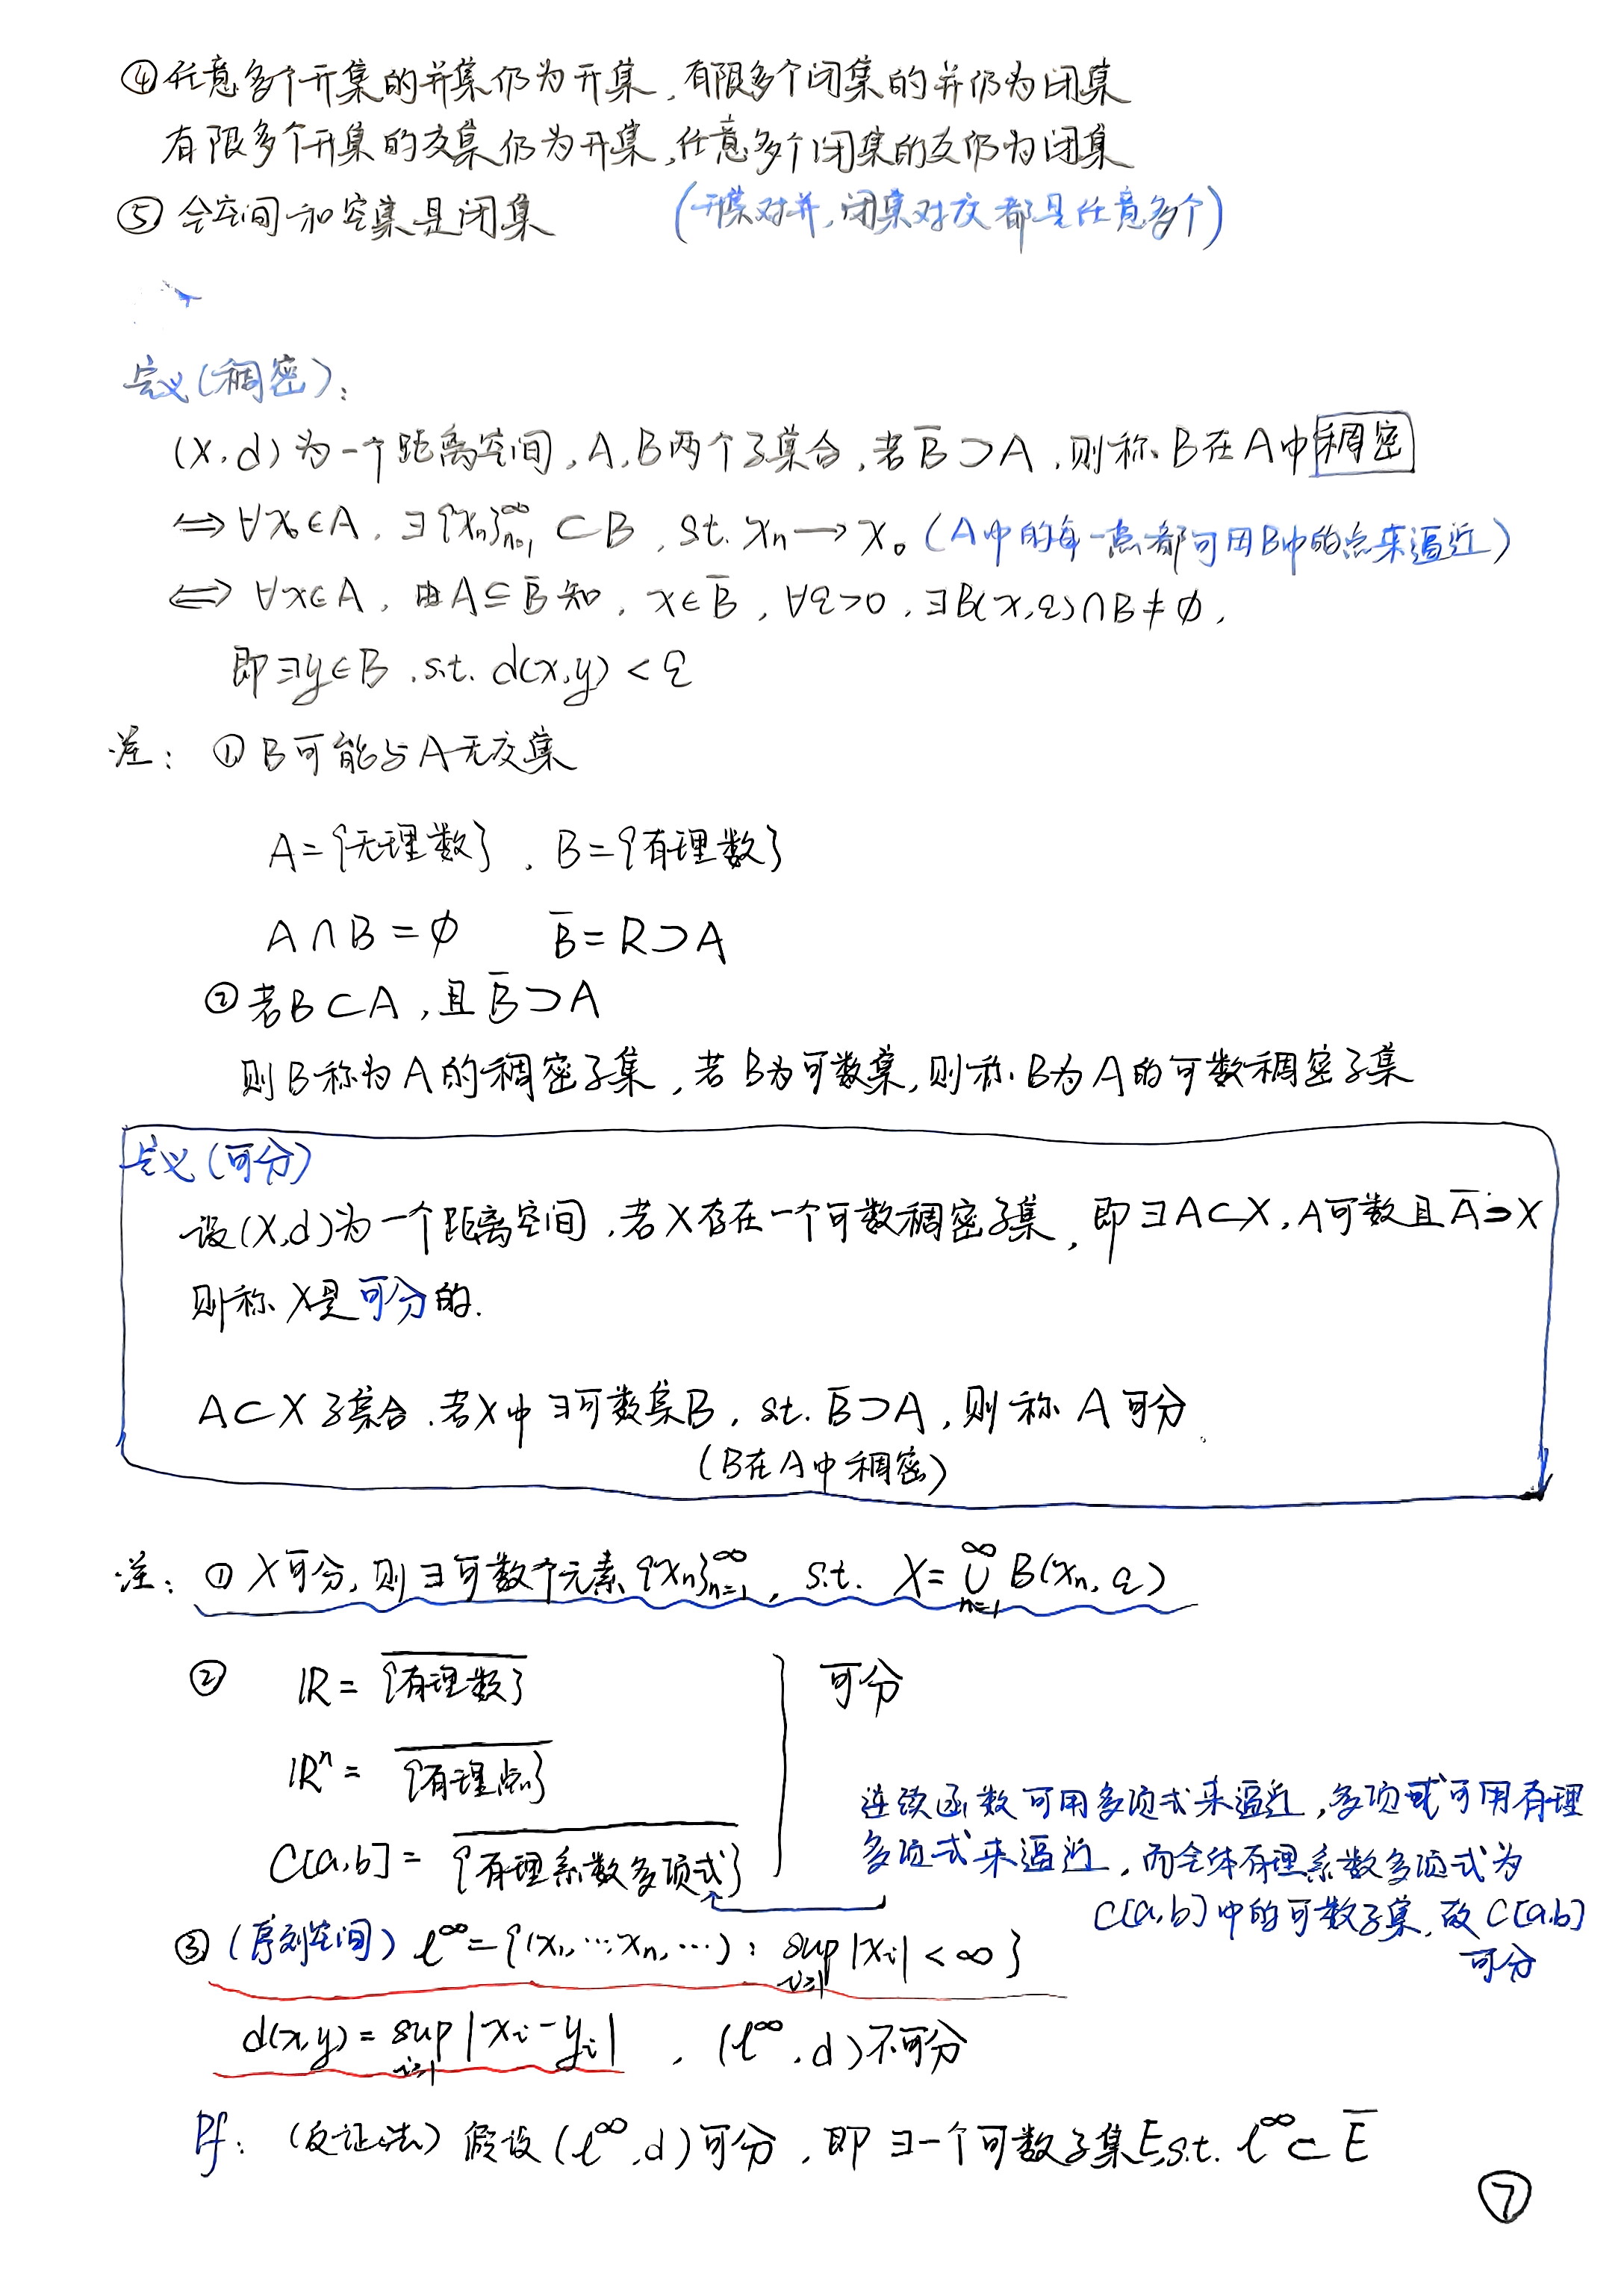 ④ 任意多个开集的并集仍为开集,有限多个闭集的并仍为闭集
有限多个开集的交集仍为开集,任意多个闭集的交仍为闭集
⑤ 全空间和空集是闭集 (开集对并,闭集对交都是任意多个)
定义(稠密):
(X,d)为一个距离空间,A,B两个子集合,若B̅⊃A,则称B在A中稠密
⟺∀x₀∈A,∃{xₙ}ₙ₌₁^∞⊂B,st. xₙ→x₀(A中的每一点都可用B中的点来逼近)
⟺ ∀x∈A,由A⊆B̅知,x∈B̅,∀ε>0,∃B(x,ε)∩B≠∅,
即∃y∈B,s.t. d(x,y)<ε
注: ① B可能与A无交集
A={无理数},B={有理数}
A∩B=∅ B̅=R⊃A
② 若B⊂A,且B̅⊃A
则B称为A的稠密子集,若B为可数集,则称B为A的可数稠密子集
定义(可分)
设(X,d)为一个距离空间,若X存在一个可数稠密子集,即∃A⊂X,A可数且A̅⊃X
则称X是可分的.
A⊂X子集合.若X中∃可数集B,st. B̅⊃A,则称A可分.
(B在A中稠密)
注: ① X可分,则∃可数个元素{xₙ}ₙ₌₁^∞,s.t. X=∪ₙ₌₁^∞ B(xₙ,ε)
② ℝ= \overline{{有理数}} 可分
ℝⁿ= \overline{{有理点}}
C[a,b]= \overline{{有理系数多项式}}
连续函数可用多项式来逼近,多项式可用有理
多项式来逼近,而全体有理系数多项式为
C[a,b]中的可数子集,故C[a,b]
可分
③(序列空间) ℓ^∞={(x₁,…,xₙ,…): sup_{i≥1}|xᵢ|<∞}
d(x,y)=sup_{i≥1}|xᵢ-yᵢ| ,(ℓ^∞,d)不可分
Pf:(反证法)假设(ℓ^∞,d)可分,即∃一个可数子集E,s.t. ℓ^∞⊂E̅
⑦